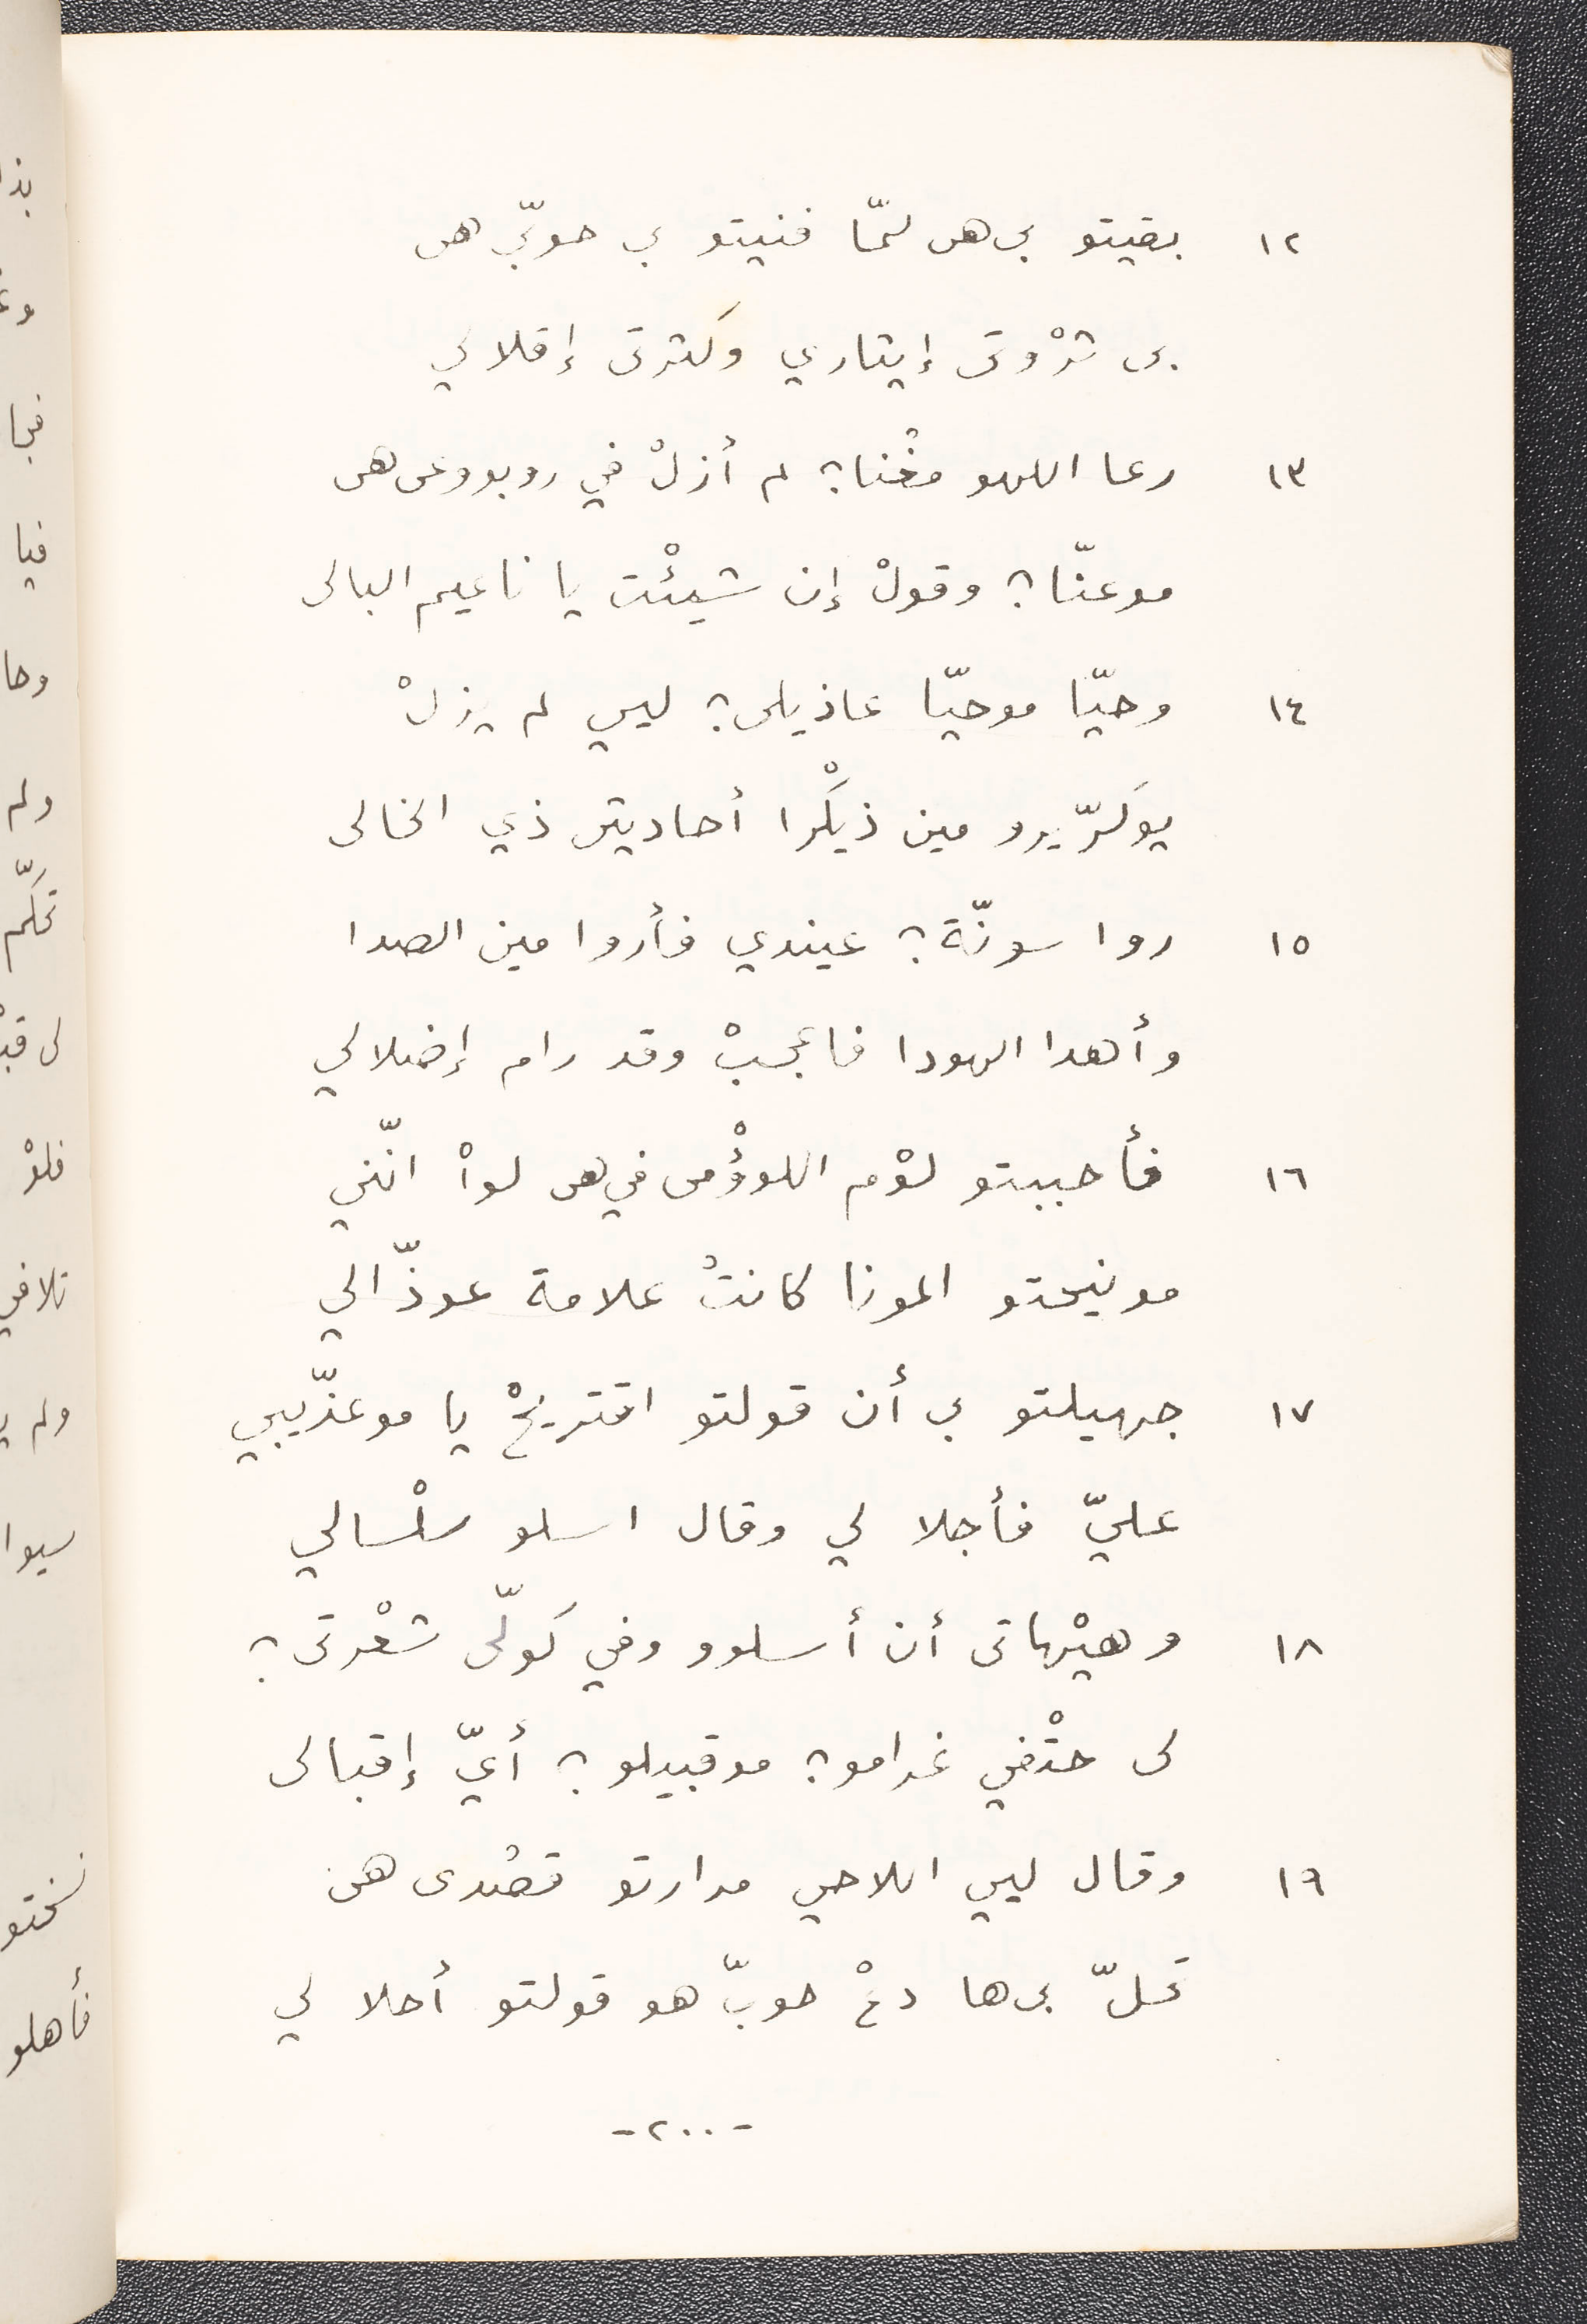 ١٢ بقيتو بي هى لمّا فنيتو بي حوبّي هى
بى ثرْوتى إيثاري وكثرتى إقلالي
١٣ رعا اللهو مغْنا؟ لم أزلْ في روبووعى هى
موعنّا؟ وقولْ إن شيئْت يا ناعيم البالى
١٤ وحيّا موحيّا عاذيلى؟ ليي لم يزلْ
يوكرّيرو مين ذيكْرا أحاديثى ذي الخالى
١٥ روا سونّة؟ عيندي فأروا مين الصدا
وأهدا الهودا فاعجبْ وقد رام إضلالي
١٦ فأحببتو لوْم اللوؤْمى في هى لواْ انّني
مونيحتو المونا كانتْ علامة عوذّالي
١٧ جهيلتو بي أن قولتو اقتريحْ يا موعذّيبي
عليّ فأجلا لي وقال اسلو سلْسالي
١٨ وهيْهاتى أن أسلوو وفي كولّى شعْرتى؟
لى حتْفي غرامو؟ موقبيلو؟ أيّ إقبالى
١٩ وقال ليي اللاحي مرارتو قصْدى هى
تحلّ بى ها دعْ حوبّ هو قولتو أحلا لي
-٢٠٠-